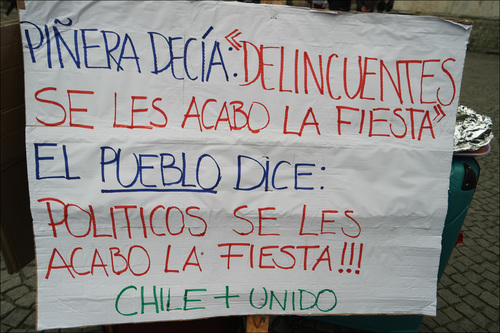 PIÑERA DECÍA: "DELINCUENTES
SE LES ACABO LA FIESTA"
EL PUEBLO DICE:
POLITICOS SE LES
ACABO LA FIESTA!!!
CHILE + UNIDO